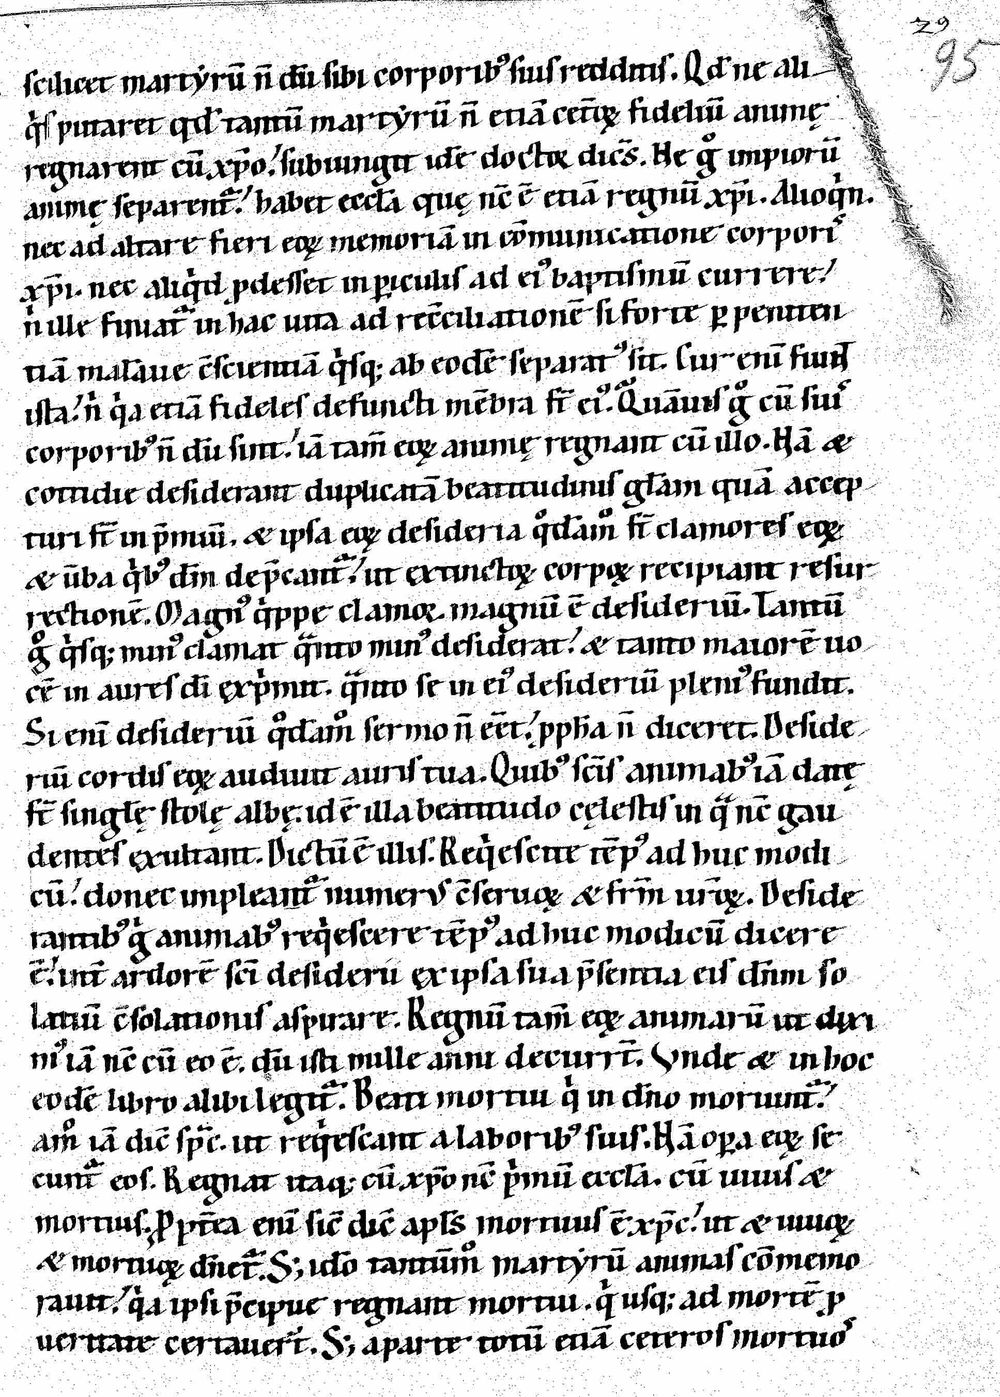 29
95
scilicet martyrū n̄ dū sibi corporibꝰ suis redditis. Qd̄ ne ali
q̇s putaret qd̄ tantū martyrū n̄ etiā cet̄oꝝ fideliū animę
regnarent cū xp̄o. subiungit idē doctor dic̄s. Ne g̊ impiorū
animę separent᷑. habet eccl̄a quę nc̄ ē etiā regnū xp̄i. Alioq̇n.
nec ad altare fieri eoꝝ memoriā in cōmunicatione corporis
xp̄i. nec aliq̇d ꝓdesset in ꝑiculis ad eiꝰ baptismū currere.
ad recc̄iliationē si forte ꝑ peniten
tiā malāue c̄scientiā q̇sq; ab eodē separatꝰ sit. Cur enī fiunt
ista. n̄ q̇a etiā fideles defuncti mēbra st̄ eiꝰ. Quāuis g̊ cū suis
corporibꝰ n̄ dū sint. iā tam̄ eoꝝ animę regnant cū illo. Nā &
cottidie desiderant duplicatā beatitudinis gl̄am quā accep
turi st̄ in p̄miū. & ipsa eoꝝ desideria qͦdam̊ st̄ clamores eoꝝ
& ūba q̇bꝰ dm̄ dep̄cant᷑. ut extinctoꝝ corpoꝝ recipiant resur
rectionē. Magnꝰ q̇ppe clamor. magnū ē desideriū. Tantū
g̊ q̇sq; minꝰ clamat qͣnto minꝰ desiderat. & tanto maiorē uo
cē in aures dī exṗmit. qͣnto se in eiꝰ desideriū pleniꝰ fundit.
Si enī desideriū qͦdam̊ sermo n̄ eēt. ꝓpha n̄ diceret. Deside
riū cordis eoꝝ audiuit auris tua. Quibꝰ sc̄is animabꝰ iā datę
st̄ singlę stolę albę. id ē illa beatitudo cęlestis in qͣ nc̄ gau
dentes exultant. Dictū ē illis. Req̇escite tēpꝰ ad huc modi
cū. donec impleant᷑ numerus c̄seruoꝝ & frm̄ ur̄oꝝ. Deside
rantibꝰ g̊ animabꝰ req̇escere tēpꝰ ad huc modicū dicere
ē. int̄ ardorē sc̄i desiderii ex ipsa sua p̄sentia eis dn̄m so
latiū c̄solationis aspirare. Regnū tam̄ eoꝝ animarū ut dixi
mꝰ iā nc̄ cū eo ē. dū isti mille anni decurrt̄. Vnde & in hoc
eodē libro alibi legit᷑. Beati mortui q̇ in dn̄o moriunt᷑.
am̊ iā dic̄ sp̄c. ut req̇escant a laboribꝰ suis. Nā oꝑa eoꝝ se
cunt᷑ eos. Regnat itaq; cū xp̄o nc̄ ṗmū eccl̄a. cū uiuis &
mortuis. Ꝓpt̄ea enī sic̄ dic̄ apl̄s mortuus ē xp̄c. ut & uiuoꝝ
& mortuoꝝ dn̄et᷑. S; ido tantūm̊ martyrū animas cōmemo
rauit. q̇a ipsi p̄cipue regnant mortui. q̇ usq; ad mortē ꝓ
ueritate certauer̄t. S; a parte totū etiā ceteros mortuos